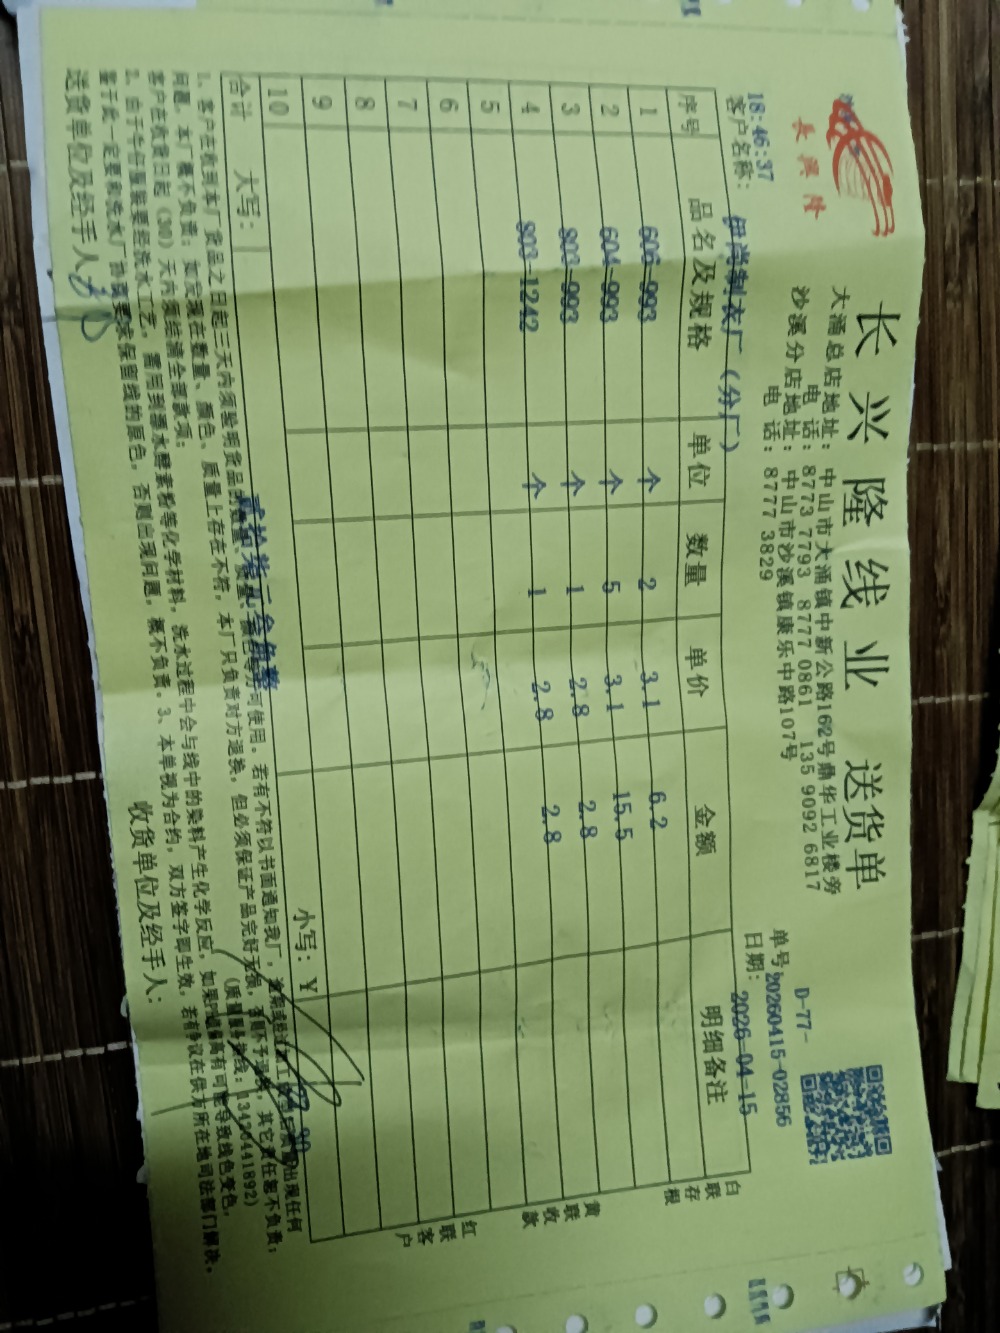 長興隆
长兴隆线业 送货单
大涌总店地址：中山市大涌镇中新公路162号鼎华工业楼旁
电 话：8773 7793 8777 0861 135 9092 6817
沙溪分店地址：中山市沙溪镇康乐中路107号
电 话：8777 3829
D-77-
单号 20260415-02856
18:46:37
客户名称：伊尚制衣厂（分厂）
日期：2026-04-15
序号 品名及规格 单位 数量 单价 金额 明细备注
1 606-993 个 2 3.1 6.2
2 604-993 个 5 3.1 15.5
3 803-993 个 1 2.8 2.8
4 803-1242 个 1 2.8 2.8
5
6
7
8
9
10
合计 大写： 小写：Y
白联存根
黄联收款
红联客户
1、客户在收到本厂货品之日起三天内须验明货品的数量、可使用。若有不符以书面通知我厂，出现任何
问题，本厂概不负责；如发现在数量、颜色、质量上存在不符，本厂只负责对方退换，但必须保证产品完好无损，否则不予，其它责任恕不负责；
客户在收货日起（30）天内须结清全部款项；
2、由于牛仔服装要经洗水工艺，需用到漂水酵素粉等化学材料，洗水过程中会与线中的染料产生化学反应，如果PH值偏高有可能导致线色变色，
鉴于此一定要和洗水厂协商要求保留线的原色，否则出现问题，概不负责。3、本单视为合约，双方签字即生效，若有争议在供方所在地司法部门解决。
送货单位及经手人： 收货单位及经手人：